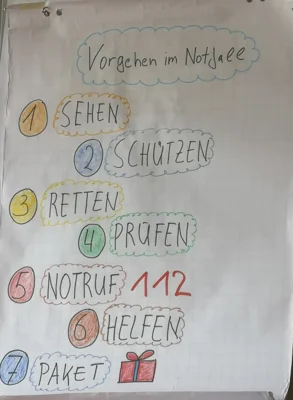 Vorgehen im Notfall
1 SEHEN
2 SCHÜTZEN
3 RETTEN
4 PRÜFEN
5 NOTRUF 112
6 HELFEN
7 PAKET